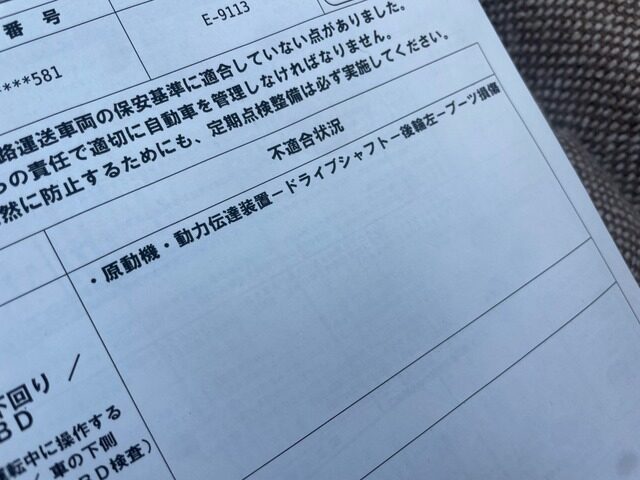 番 号
E-9113
****581
路運送車両の保安基準に適合していない点がありました。
の責任で適切に自動車を管理しなければなりません。
然に防止するためにも、定期点検整備は必ず実施してください。
不適合状況
・原動機・動力伝達装置－ドライブシャフト－後輪左－ブーツ損傷
下回り /
BD
転中に操作する
/ 車の下側
BD検査)